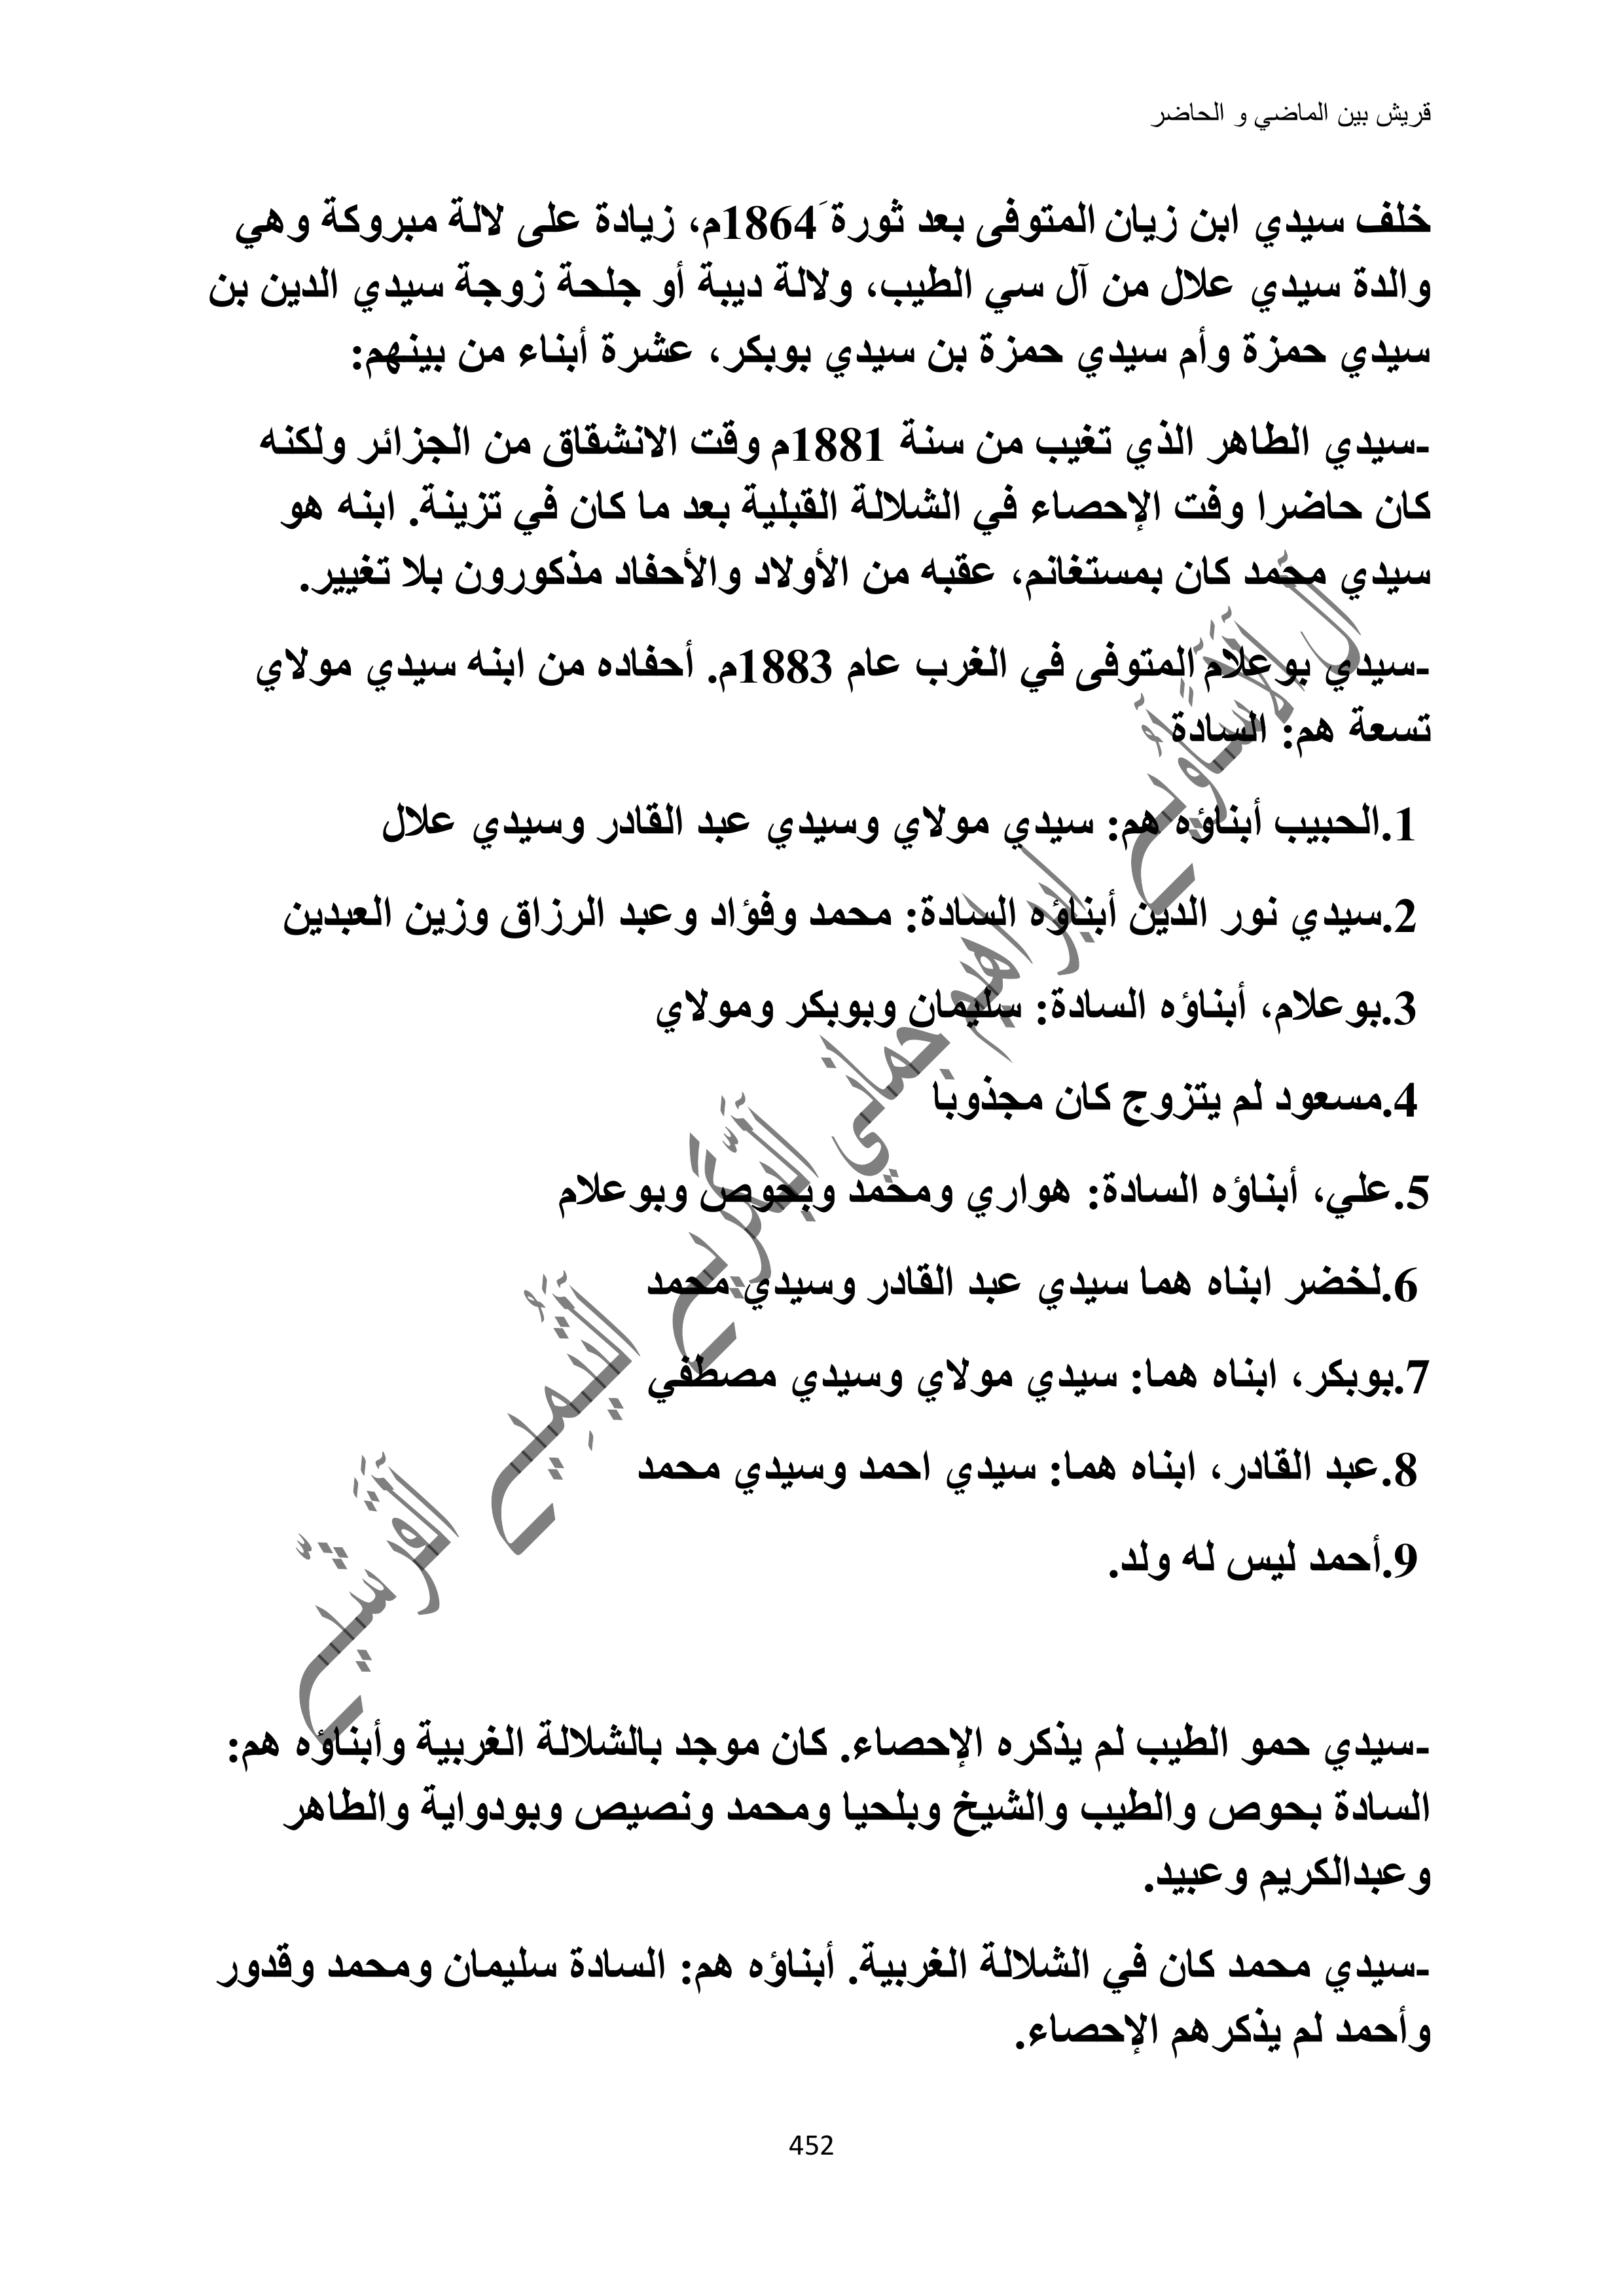 قريش بين الماضي و الحاضر
خلف سيدي ابن زيان المتوفى بعد ثورة َ1864م، زيادة على لالة مبروكة وهي
والدة سيدي علال من آل سي الطيب، ولالة ديبة أو جلحة زوجة سيدي الدين بن
سيدي حمزة وأم سيدي حمزة بن سيدي بوبكر، عشرة أبناء من بينهم:
-سيدي الطاهر الذي تغيب من سنة 1881م وقت الانشقاق من الجزائر ولكنه
كان حاضرا وفت الإحصاء في الشلالة القبلية بعد ما كان في تزينة. ابنه هو
سيدي محمد كان بمستغانم، عقبه من الأولاد والأحفاد مذكورون بلا تغيير.
-سيدي بوعلام المتوفى في الغرب عام 1883م. أحفاده من ابنه سيدي مولاي
تسعة هم: السادة
1.الحبيب أبناؤه هم: سيدي مولاي وسيدي عبد القادر وسيدي علال
2.سيدي نور الدين أبناؤه السادة: محمد وفؤاد وعبد الرزاق وزين العبدين
3.بوعلام، أبناؤه السادة: سليمان وبوبكر ومولاي
4.مسعود لم يتزوج كان مجذوبا
5.علي، أبناؤه السادة: هواري ومحمد وبحوص وبوعلام
6.لخضر ابناه هما سيدي عبد القادر وسيدي محمد
7.بوبكر، ابناه هما: سيدي مولاي وسيدي مصطفي
8.عبد القادر، ابناه هما: سيدي احمد وسيدي محمد
9.أحمد ليس له ولد.
-سيدي حمو الطيب لم يذكره الإحصاء. كان موجد بالشلالة الغربية وأبناؤه هم:
السادة بحوص والطيب والشيخ وبلحيا ومحمد ونصيص وبودواية والطاهر
وعبدالكريم وعبيد.
-سيدي محمد كان في الشلالة الغربية. أبناؤه هم: السادة سليمان ومحمد وقدور
وأحمد لم يذكرهم الإحصاء.
452